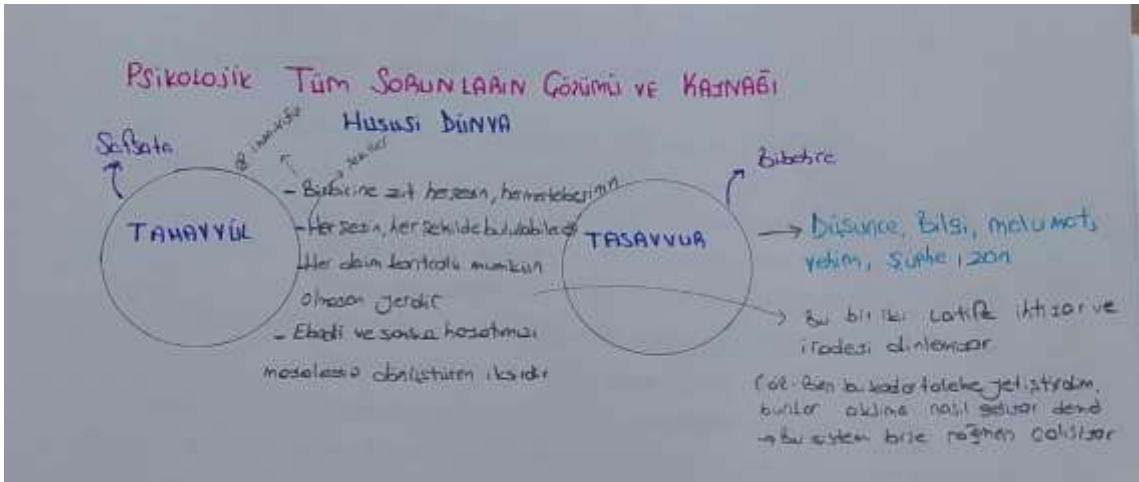 Psikolojik Tüm Sorunların Çözümü ve Kaynağı
Hususi Dünya
Safsata
Bibehre
TAHAYYÜL
- Birbirine zıt herşeyin, hermertebesinin
- Herşeyin, her şekilde bulunabileceği
- Her daim kontrolü mümkün
olmayan yerdir
- Ebedi ve sonsuz hayatımızı
dönüştüren iksirdir
TASAVVUR
→ Düşünce, Bilgi, malumat,
vehim, Şüphe, izan
→ Bu bir iki Latife ihtiyar ve
iradeyi dinlemiyor
Ben bu kadar talebe yetiştirdim,
bunlar aklıma nasıl geliyor
→ Bu sistem bize rağmen çalışıyor